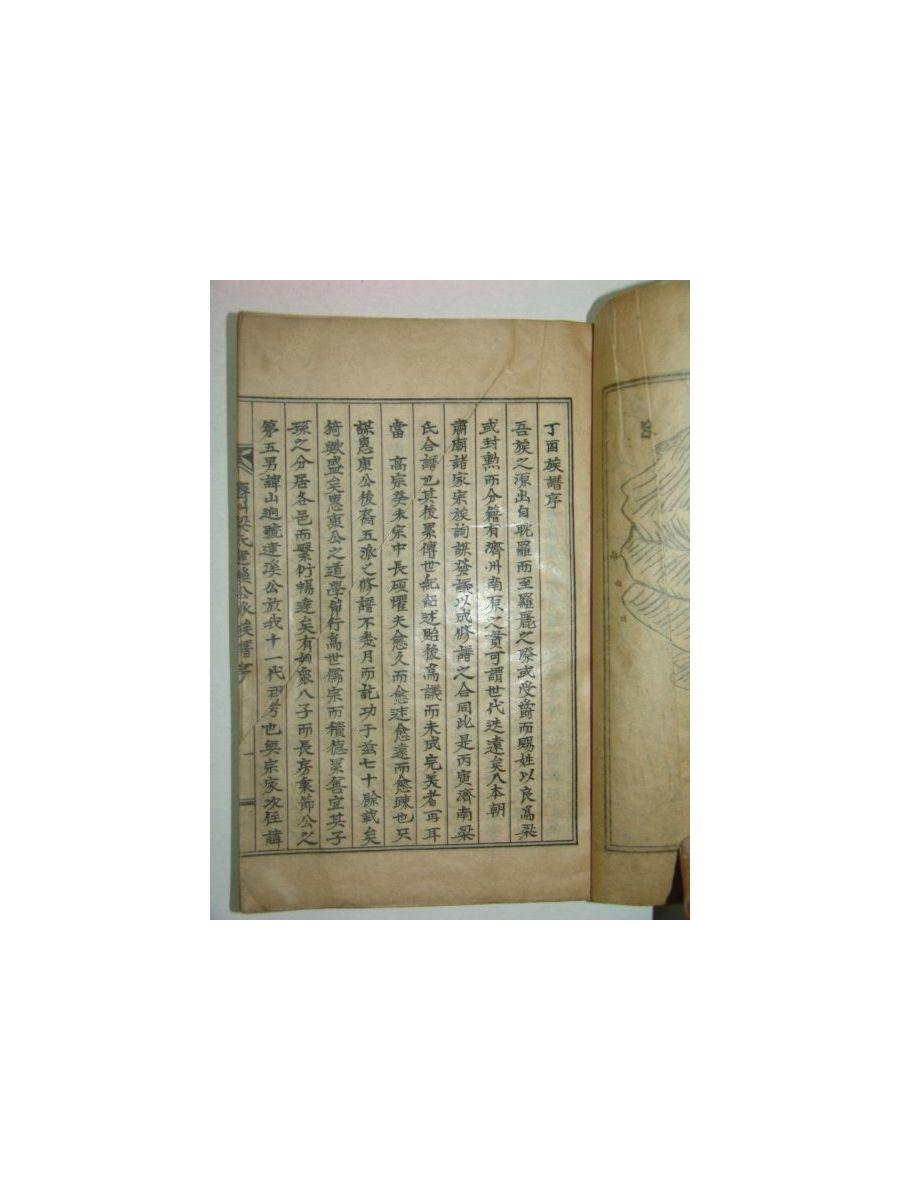 丁酉族譜序
吾族之源出自耽羅而至羅麗之際或受爵而賜姓以良爲梁
或封勲而分籍有濟州南原之貫可謂世代迭遠矣入本朝
肅廟諸家宗族詢謀發議以成修譜之合同此是丙寅濟南梁
氏合譜也其後累傳世紀紹述貽後爲議而未成完美者再耳
當 高宗癸未宗中長碩懼夫愈久而愈迷愈遠而愈踈也只
謀惠康公後裔五派之修譜不幾月而訖功于玆七十餘載矣
猗歟盛矣惠康公之道學節行爲世儒宗而積德累善宜其子
孫之分居各邑而繁衍暢達矣有如衆八子而長房秉節公之
第五男諱山逈號達溪公放我十一代也與宗家次侄諱
濟州梁氏惠康公派族譜序 一